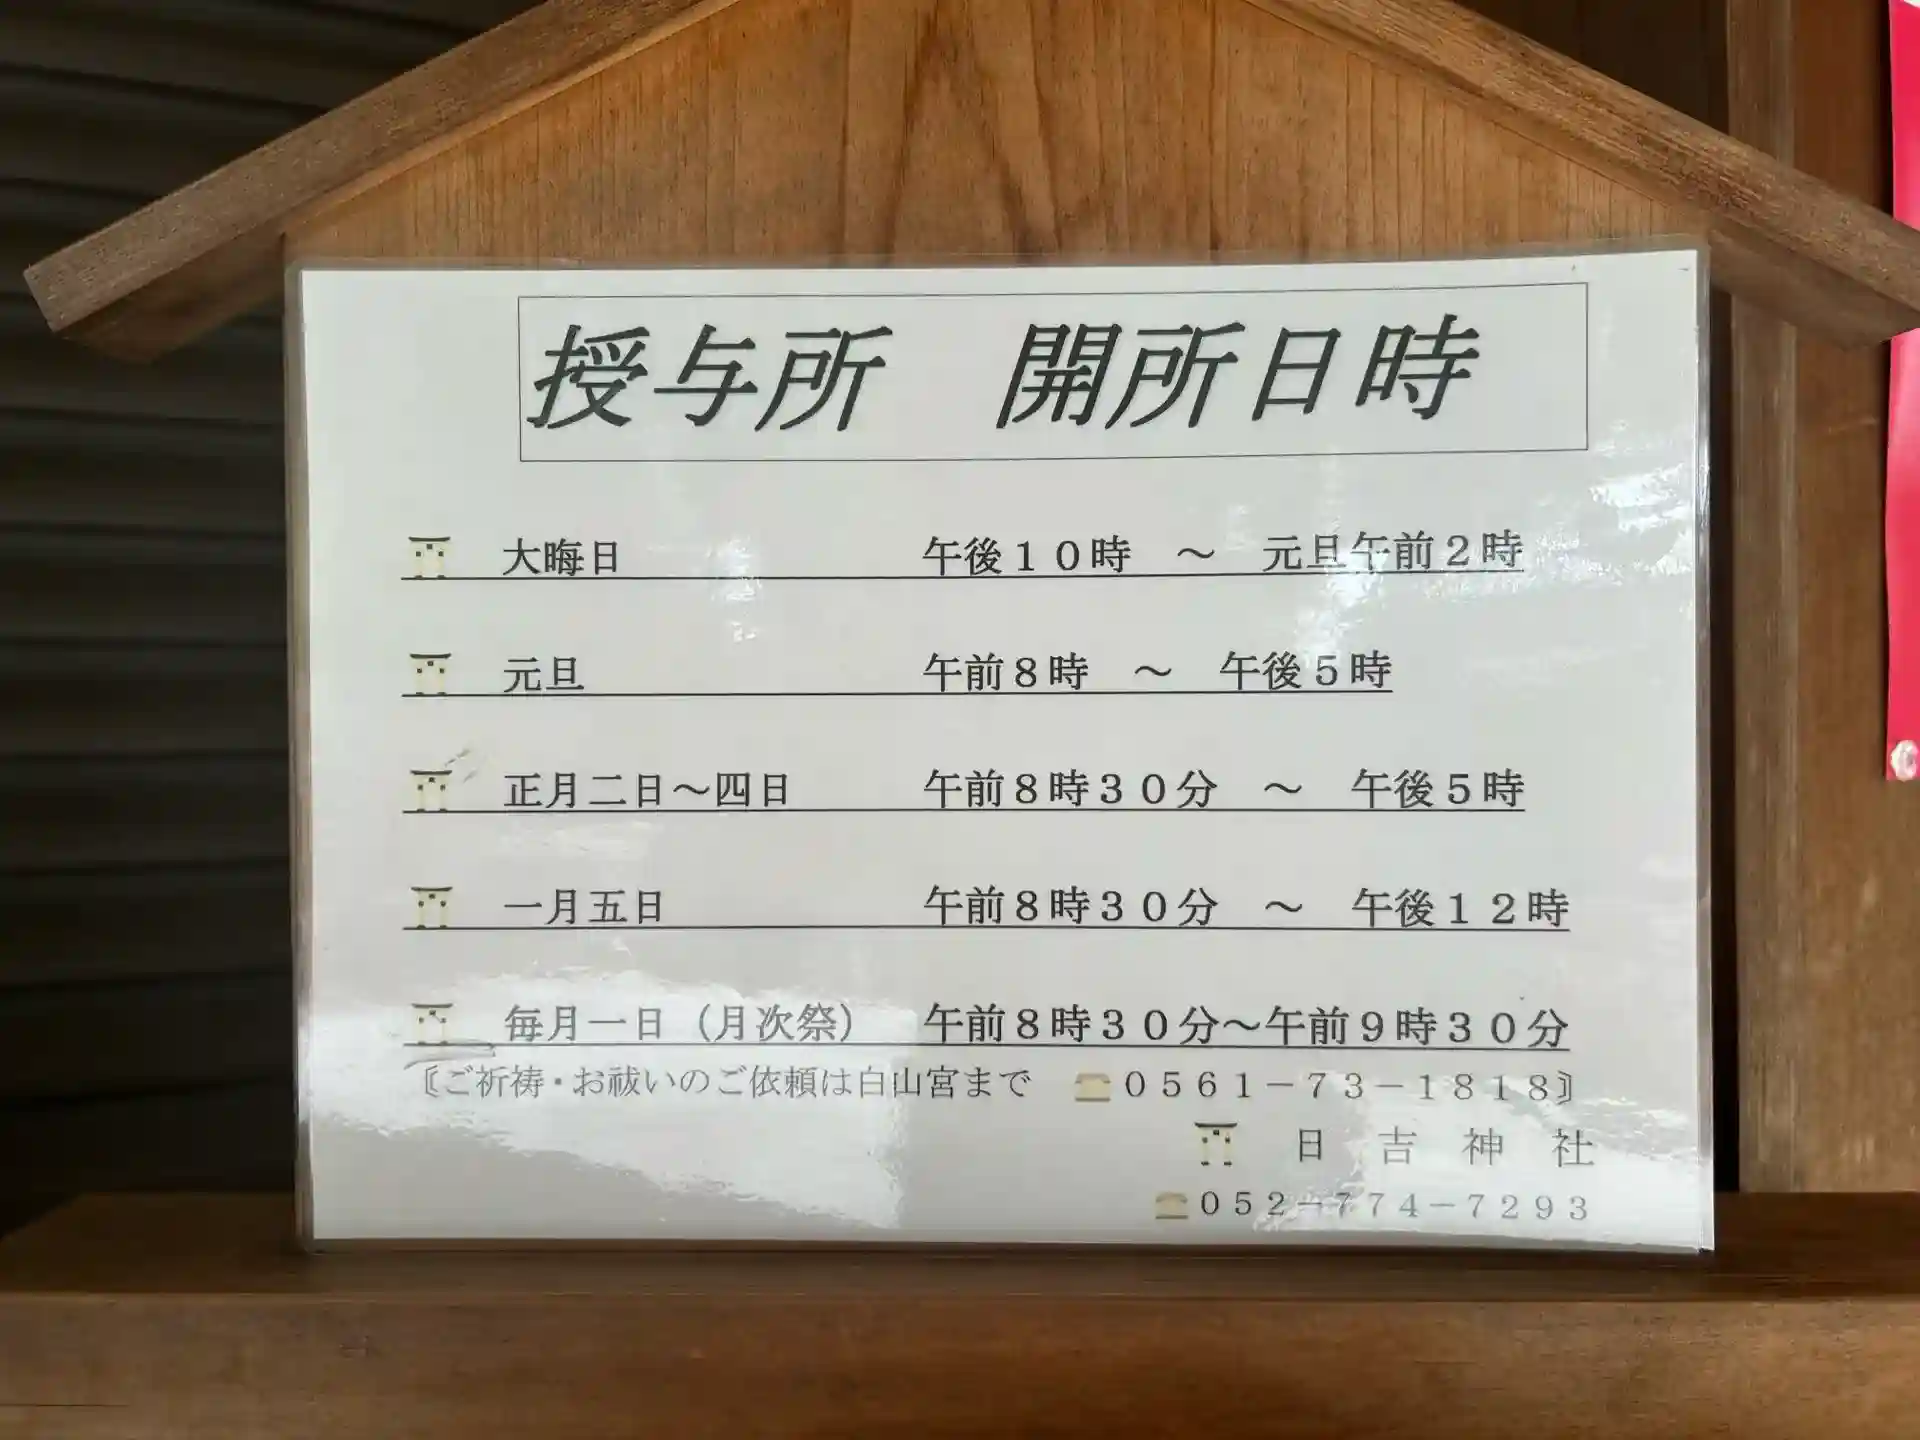 授与所　開所日時
大晦日　午後１０時　～　元旦午前２時
元旦　午前８時　～　午後５時
正月二日～四日　午前８時３０分　～　午後５時
一月五日　午前８時３０分　～　午後１２時
毎月一日（月次祭）　午前８時３０分～午前９時３０分
〘ご祈祷・お祓いのご依頼は白山宮まで　０５６１－７３－１８１８〙
日　吉　神　社
０５２－７７４－７２９３